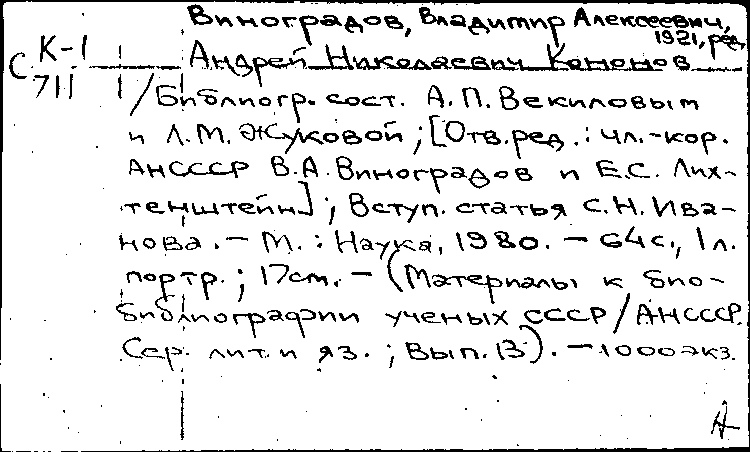 Виноградов, Владимир Алексеевич,
1921, ред.
К-1
С 711
Андрей Николаевич Кононов
/Библиогр. сост. А.П. Векиловым
и Л.М. Жуковой; [Отв. ред.: чл.-кор.
АНСССР В.А. Виноградов и Е.С. Лих-
тенштейн]; Вступ. статья С.Н. Ива-
нова. – М.: Наука, 1980. – 64с., 1л.
портр.; 17см. – (Материалы к био-
библиографии ученых СССР/АНСССР.
Сер. лит. и яз.; Вып. 13). – 1000экз.